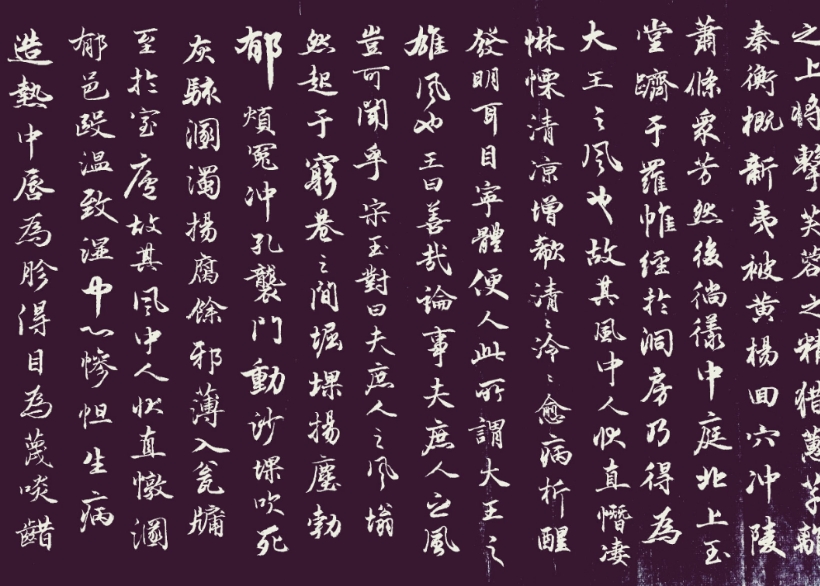 之上將擊芙蓉之精猎蕙草離
秦衡概新夷被黄楊回穴冲陵
蕭條衆芳然後徜徉中庭北上玉
堂躋于羅帷經於洞房乃得為
大王之風也故其風中人狀直憯凄
惏慄清凉增欷清〻泠〻愈病析酲
發明耳目寧體便人此所謂大王之
雄風也王曰善哉論事夫庶人之風
豈可聞乎宋玉對曰夫庶人之風塕
然起于窮巷之間堀堁揚塵勃
郁煩冤冲孔襲門動沙堁吹死
灰駭溷濁揚腐餘邪薄入瓮牖
至於室廬故其風中人狀直憞溷
郁邑毆温致濕中心慘怛生病
造熱中唇為胗得目為蔑啖齰